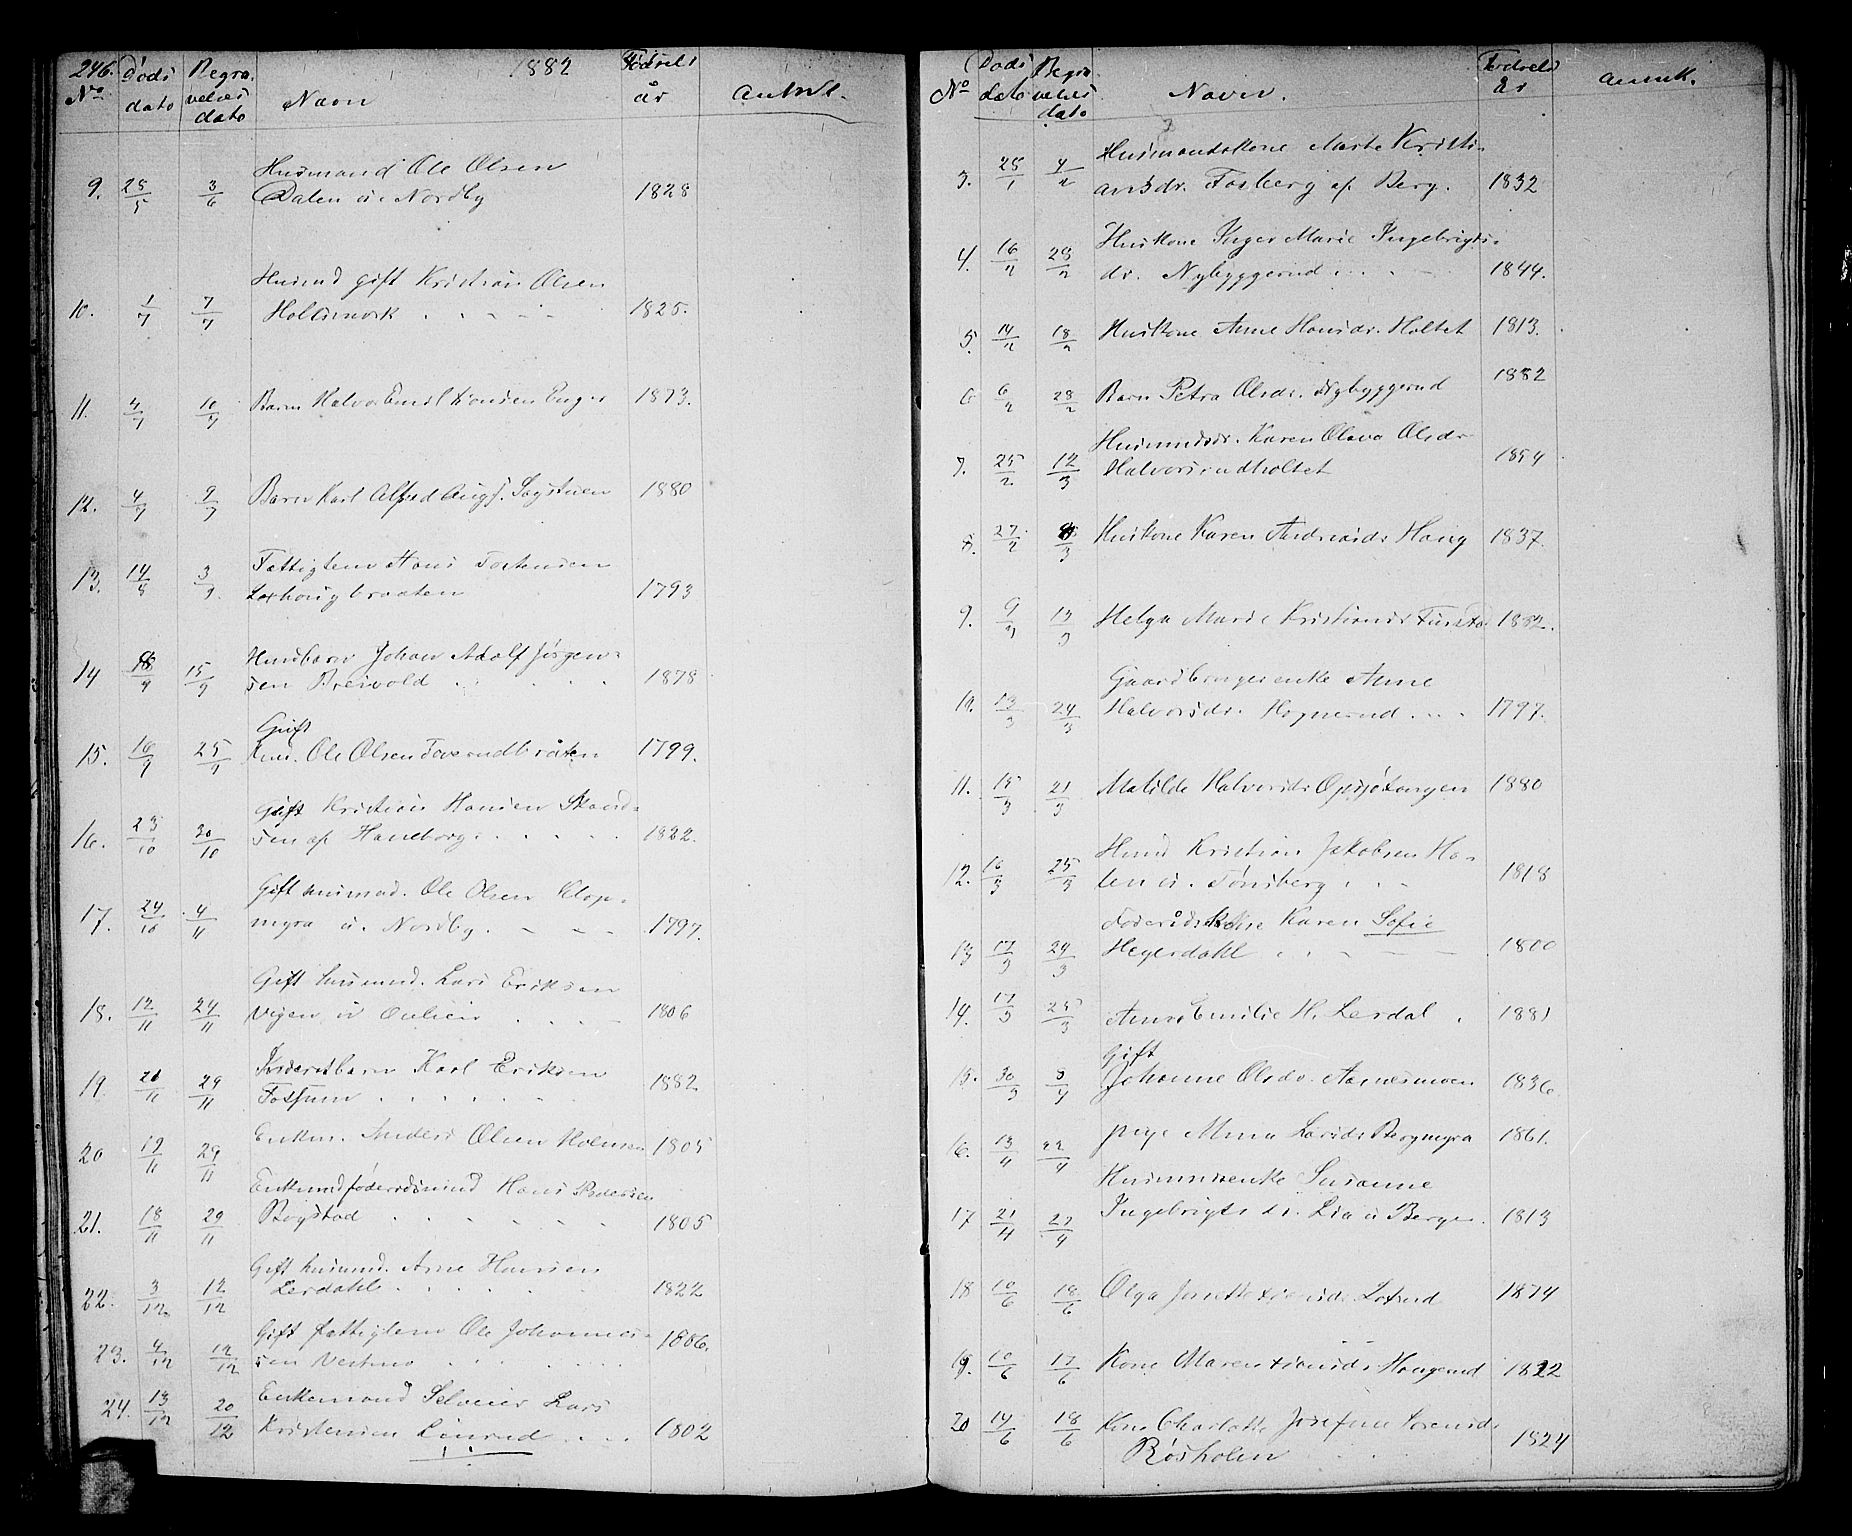 246. 1882
No Døds dato Begravelses dato Navn Fødsels år Anmk.
9. 28/5 3/6 Husmand Ole Olsen
Dalen u. Nordby 1828
10. 1/7 7/7 Husmd gift Kristian Olsen
1825.
11. 4/7 10/7 Barn Halvor Emil Enger 1873.
12. 4/7 9/7 Barn Karl Alfred Augf. Sagstuen 1880
13. 14/8 3/9 Fattiglem Hans Torstensen
braaten 1793
14 15/9 Husbarn Johan Adolf Jørgen-
sen Breivold 1878
15. 16/9 25/9 Gift
Hmd. Ole Olsen Taserudbråten 1799.
16. 23/10 30/10 Gift Kristian Hansen Skand-
sen af Haneborg 1822.
17. 24/10 4/11 Gift husmad. Ole Olsen Klop-
myra u. Nordby. 1797.
18. 12/11 24/11 Gift husmnd. Lars Eriksen
Vigen u 1806
19. 21/11 29/11 Inderstbarn Karl Eriksen
Fossum 1882
20 17/11 29/11 Enkm. Anders Olsen Holmsen 1805
21. 18/11 29/11 Enkmd føderådsmd Hans Pedersen
Bøgstad 1805
22. 3/12 12/12 Gift husmd. Arne Hansen
Lerdahl 1822
23. 4/12 12/12 Gift fattiglem Ole Johannes-
sen Vestmo 1806.
24. 13/12 20/12 Enkemand Selveier Lars
Kristensen Linrud 1802
No Døds dato Begravelses dato Navn. Fødsels år Anmk.
3. 28/1 4/2 Husmandskone Marte Kristi-
ansdr. Fosberg af Berg. 1832
4. 16/2 28/2 Huskone Inger Marie Ingebrigts-
dr. Nybyggerud 1844.
5. 14/2 18/2 Huskone Anne Hansdr. Holtet 1813.
6 6/2 28/2 Barn Petra Olsdr. Nybyggerud 1882
7. 25/2 12/3 Husmndsdr. Karen Olava Olsdr
Halvorsrudholtet 1854
8. 27/2 Huskone Karen Andreasdr Haug 1837.
9. 9/3 13/3 Helga Marie Kristiansdr 1882.
10. 13/3 24/3 Gaardbrugerenke Anne
Halvorsdr. Hognerud 1797.
11. 15/3 21/3 Matilde Halvorsdr Opsjøtangen 1880
12. 16/3 25/3 Hmd Kristian Jakobsen Ho-
len u. Tønsberg 1818
13 17/3 24/3 Føderådskone Karen Sofie
Hegerdahl 1800
14. 17/3 25/3 Anna Emilie H. Lerdal 1881
15. 30/3 Gift
Johanne Olsdr. Aarnesmoen 1836
16. 13/4 22/4 pige Anna Larsdr Bergmyra 1861.
17 21/4 27/4 Husmnsenke Susanne
Ingebrigts dr. Lia u Berger. 1813
18 10/6 18/6 Olga 1874
19. 10/6 17/6 Kone Maren Haugerud 1822
20 14/6 18/6 Kone Charlotte Josefine Sørensdr
Røsholen 1824